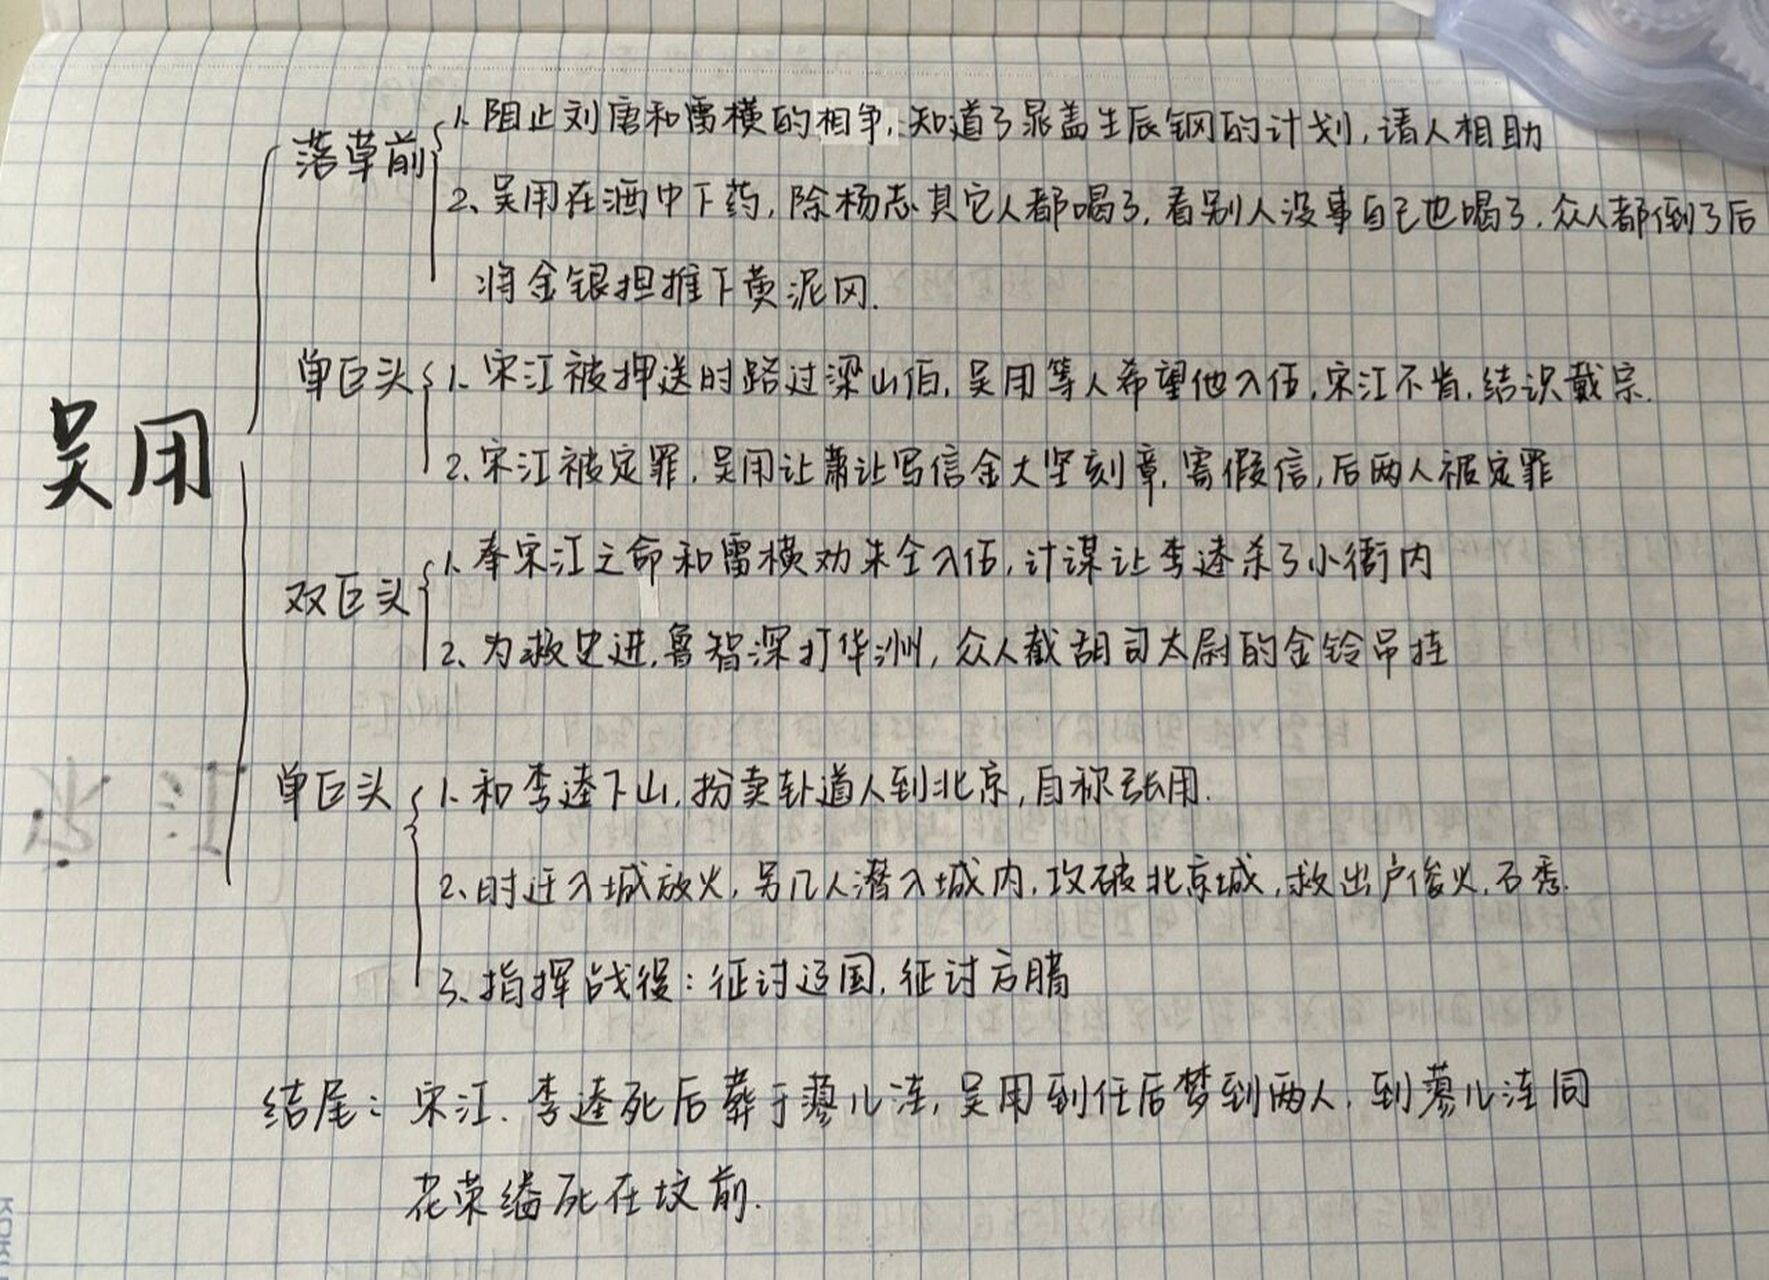 吴用
落草前
1、阻止刘唐和雷横的相争,知道了晁盖生辰钢的计划,请人相助
2、吴用在酒中下药,除杨志其它人都喝了,看别人没事自己也喝了.众人都倒了后
将金银担推下黄泥冈.
单巨头
1、宋江被押送时路过梁山伯,吴用等人希望他入伍,宋江不肯,结识戴宗.
2、宋江被定罪,吴用让萧让写信金大坚刻章,寄假信,后两人被定罪
双巨头
1、奉宋江之命和雷横劝朱仝入伍,计谋让李逵杀了小衙内
2、为救史进,鲁智深打华洲,众人截胡司太尉的金铃吊挂
单巨头
1、和李逵下山,扮卖卦道人到北京,自称张用.
2、时迁入城放火,另几人潜入城内,攻破北京城,救出卢俊义,石秀.
3、指挥战役:征讨辽国,征讨方腊
结尾:宋江、李逵死后葬于蓼儿洼,吴用到任后梦到两人,到蓼儿洼同
花荣缢死在坟前.